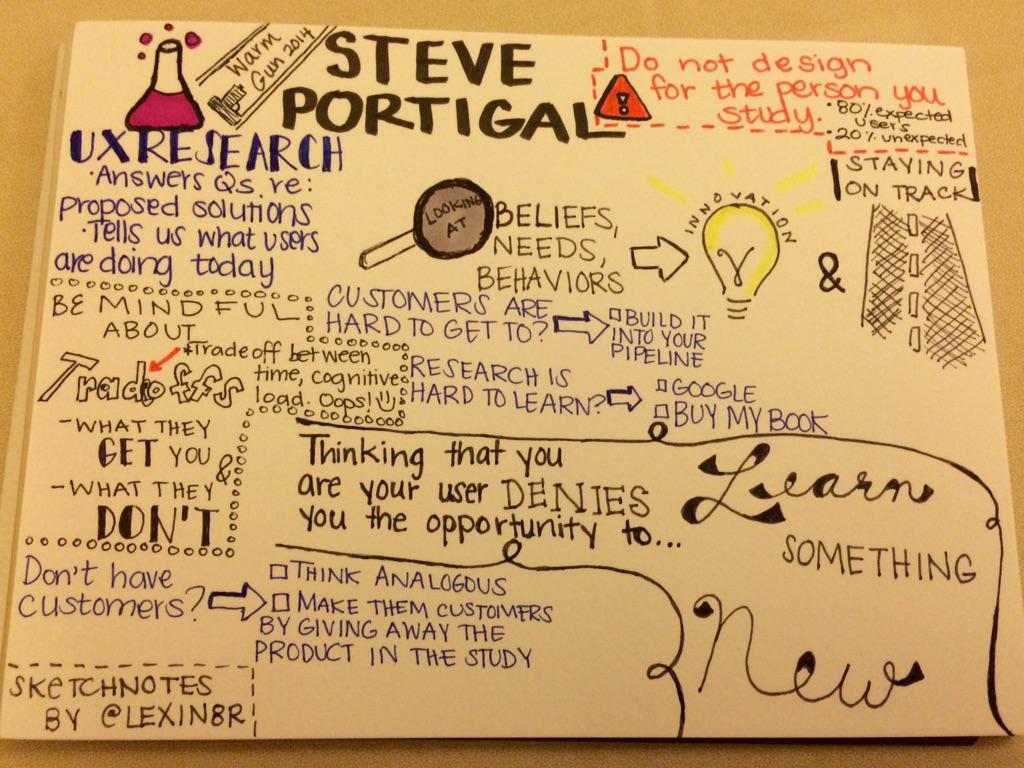 Warm
Gun 2014
STEVE
PORTIGAL
Do not design
for the person you
study.
• 80% expected
users
• 20% unexpected
UX RESEARCH
• Answers Qs re:
proposed solutions
• Tells us what users
are doing today
LOOKING
AT
BELIEFS,
NEEDS,
BEHAVIORS
INNOVATION
&
STAYING
ON TRACK
BE MINDFUL
ABOUT
Tradoffs
*Tradeoff between
time, cognitive
load. Oops!
- WHAT THEY
GET YOU
&
- WHAT THEY
DON'T
CUSTOMERS ARE
HARD TO GET TO?
BUILD IT
INTO YOUR
PIPELINE
RESEARCH IS
HARD TO LEARN?
GOOGLE
BUY MY BOOK
Thinking that you
are your user DENIES
you the opportunity to...
Learn
SOMETHING
New
Don't have
customers?
THINK ANALOGOUS
MAKE THEM CUSTOMERS
BY GIVING AWAY THE
PRODUCT IN THE STUDY
SKETCHNOTES
BY @LEXIN8R